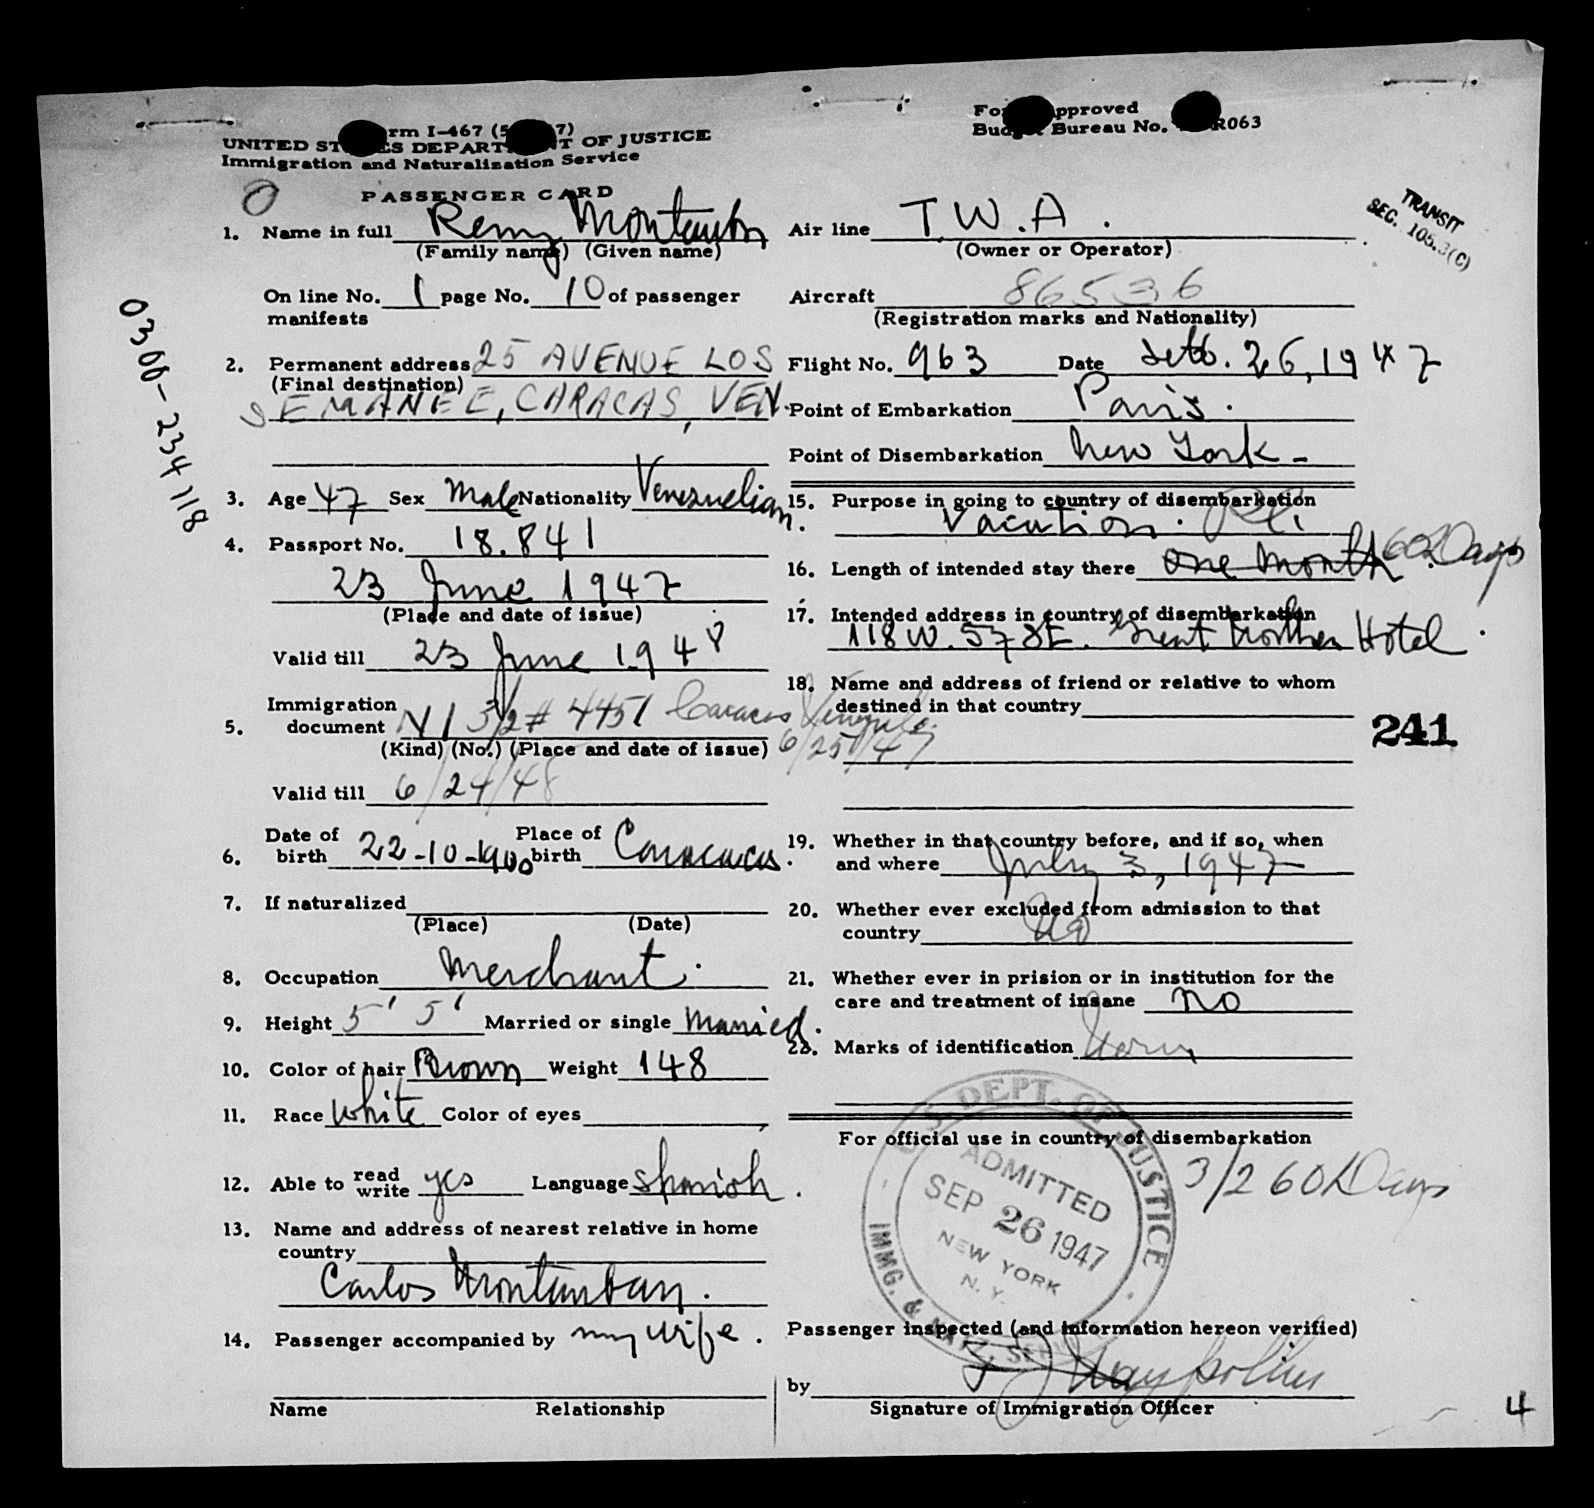 Form I-467
UNITED STATES DEPARTMENT OF JUSTICE
Immigration and Naturalization Service
PASSENGER CARD
Form Approved
Budget Bureau No. R063
TRANSIT
SEC. 105.3(C)
0300-234718
1. Name in full Remy Montauban
(Family name) (Given name)
On line No. 1 page No. 10 of passenger
manifests
2. Permanent address 25 AVENUE LOS
(Final destination)
SEMANEE, CARACAS, VEN.
3. Age 47 Sex Male Nationality Venezuelian.
4. Passport No. 18.841
23 June 1947
(Place and date of issue)
Valid till 23 June 1948
Immigration
5. document 3/2 # 4451 Caracas Venezuela
(Kind) (No.) (Place and date of issue) 6/25/47
Valid till 6/24/48
6. Date of birth 22-10-1900 Place of birth Caracas.
7. If naturalized
(Place) (Date)
8. Occupation Merchant.
9. Height 5' 5' Married or single Married.
10. Color of hair Brown Weight 148
11. Race White Color of eyes
12. Able to read write yes Language Spanish.
13. Name and address of nearest relative in home
country
Carlos Montauban.
14. Passenger accompanied by my wife.
Name Relationship
Air line T.W.A.
(Owner or Operator)
Aircraft 86536
(Registration marks and Nationality)
Flight No. 963 Date Sett. 26, 1947
Point of Embarkation Paris.
Point of Disembarkation New York-
15. Purpose in going to country of disembarkation
Vacation.
16. Length of intended stay there one month 60 Days
17. Intended address in country of disembarkation
118 W. 57 St. Great Northern Hotel.
18. Name and address of friend or relative to whom
destined in that country
241
19. Whether in that country before, and if so, when
and where July 3, 1947
20. Whether ever excluded from admission to that
country No
21. Whether ever in prision or in institution for the
care and treatment of insane No
22. Marks of identification None
For official use in country of disembarkation
3/2 60 Days
U.S. DEPT. OF JUSTICE
ADMITTED
SEP 26 1947
NEW YORK
N.Y.
IMMG. & NATZ. SERV.
Passenger inspected (and information hereon verified)
by
Signature of Immigration Officer
4